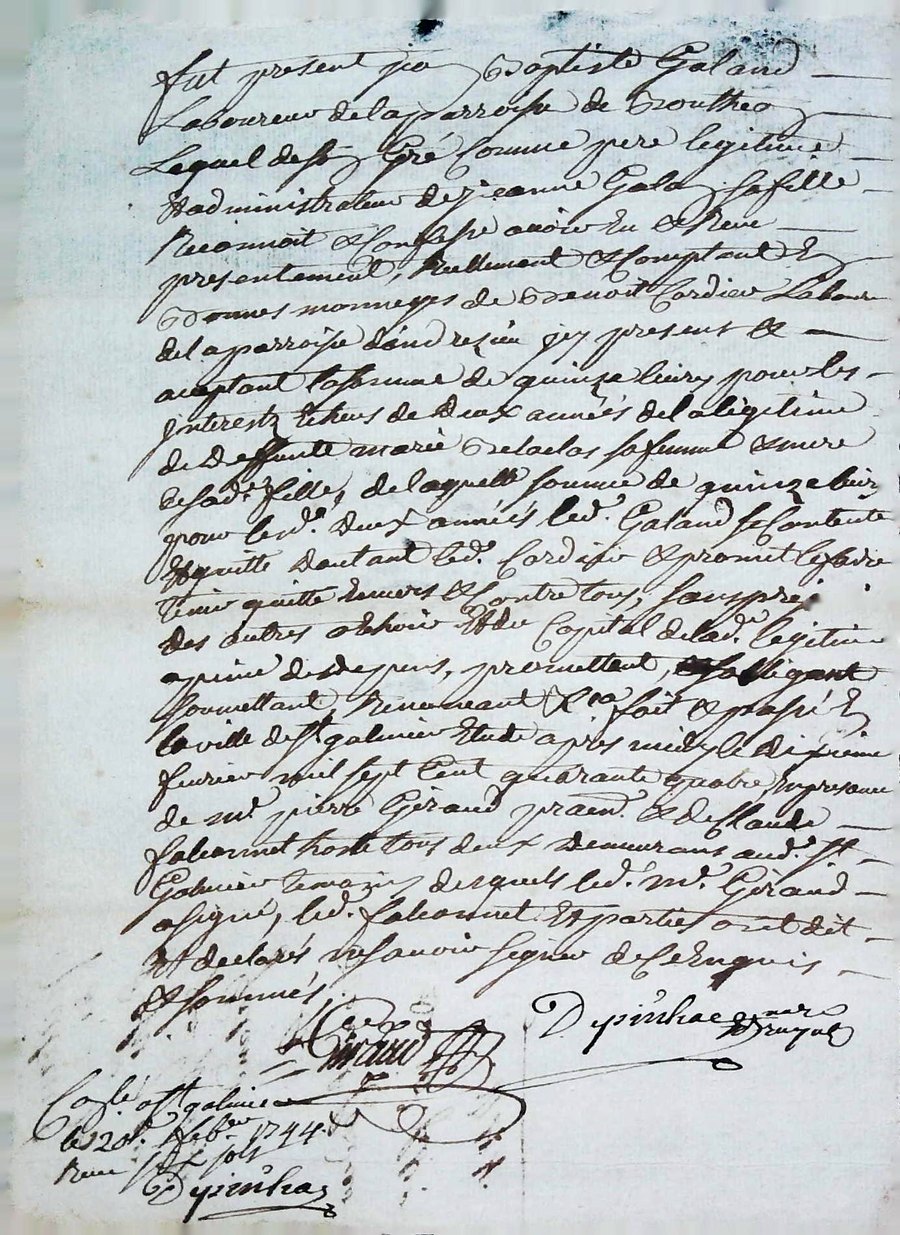 fut present jea Baptiste Galand
Laboureur de la parroisse de Boutheo
Lequel de son Gré Comme pere legitime
Et administrateur de jeanne Galand sa fille
Reconnoit et Confesse avoir Eu et Receu
presentement, Reellement et Comptant En
Bonnes monneyes de Benoit Cordier Laboureur
de la parroisse d'andrezieu jcy present et
aceptant la somme de quinze livres pour les
jnterests Echeus de Deux années de la legitime
de Deffunte marie sa femme et mere
de sad.e fille, de laquelle somme de quinze livres
pour lesd.s Deux années led.t Galand se Contente
Et quitte dautant led.t Cordier et promet le faire
tenir quitte Envers et Contre tous, sans prej.
des autres a Echoir Et du Capital de lad.e legitime
a peine de despens, promettant, obligant
soumettant Renonceant &ca fait et passé En
la ville de St galmier Etude apres midy le dixieme
fevrier mil sept Cent quarante quatre En presence
de m.e pierre Giraud pratn. et de Claude
faleonnet hoste tous deux Demeurans aud.t St
Galmier temoins desquels led.t m.e Giraud
a signé, led.t faleonnet Et parties ont dit
Et declarés ne savoir signer de ce Enquis
et sommés
Giraud
Depinhac
Co.lé a St galmier
le 20e feb.er 1744
Receu six sols
Depinhac